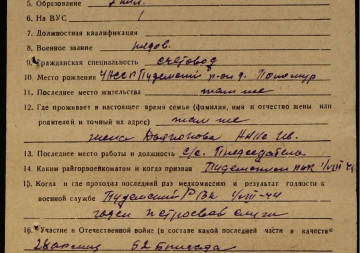 5. Образование 7 кл.
6. На ВУС
7. Должностная квалификация
8. Военное звание рядов.
9. Гражданская специальность счетовод
10. Место рождения УАССР Пудемский р-он д.
11. Последнее место жительства там же
12. Где проживает в настоящее время семья (фамилия, имя и отчество жены или
родителей и точный их адрес) там же
жена
13. Последнее место работы и должность с/с. Председатель
14. Каким райгорвоенкоматом и когда призван Пудемским рвк
15. Когда и где проходил последний раз медкомиссию и результат годности к
военной службе Пудемский РВК
годен к строевой службе
16. Участие в Отечественной войне (в составе какой последней части в качестве
52 Бригада